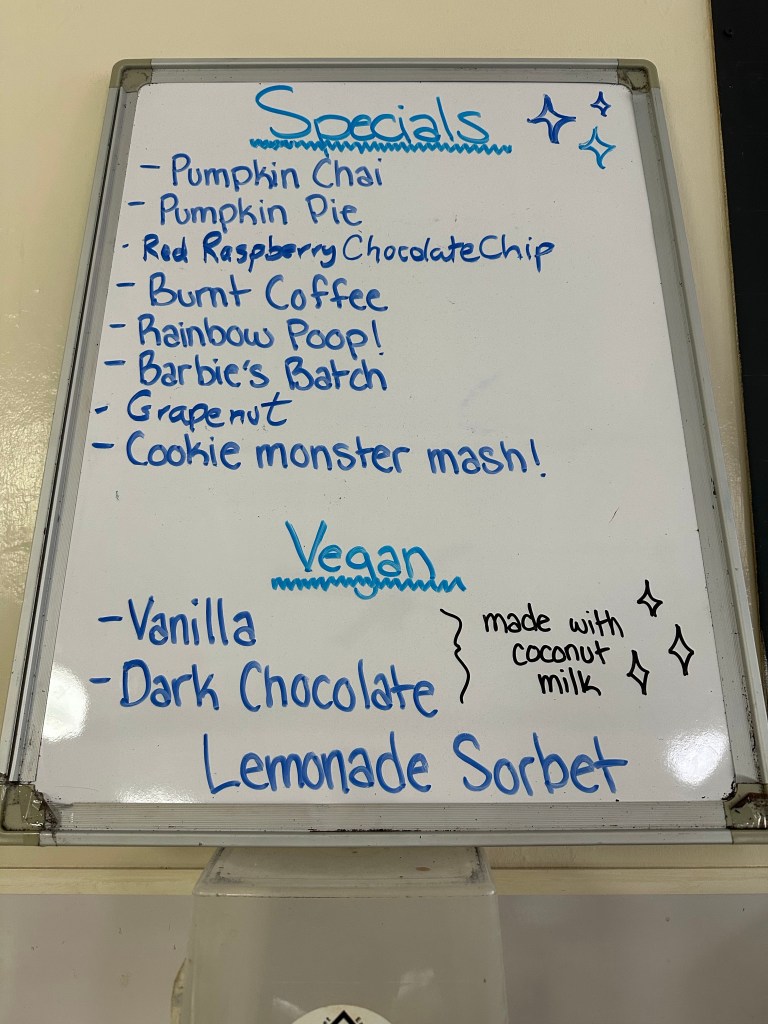 Specials
- Pumpkin Chai
- Pumpkin Pie
· Red Raspberry Chocolate Chip
- Burnt Coffee
- Rainbow Poop!
- Barbie's Batch
- Grapenut
- Cookie monster mash!
Vegan
- Vanilla
- Dark Chocolate
made with
coconut
milk
Lemonade Sorbet